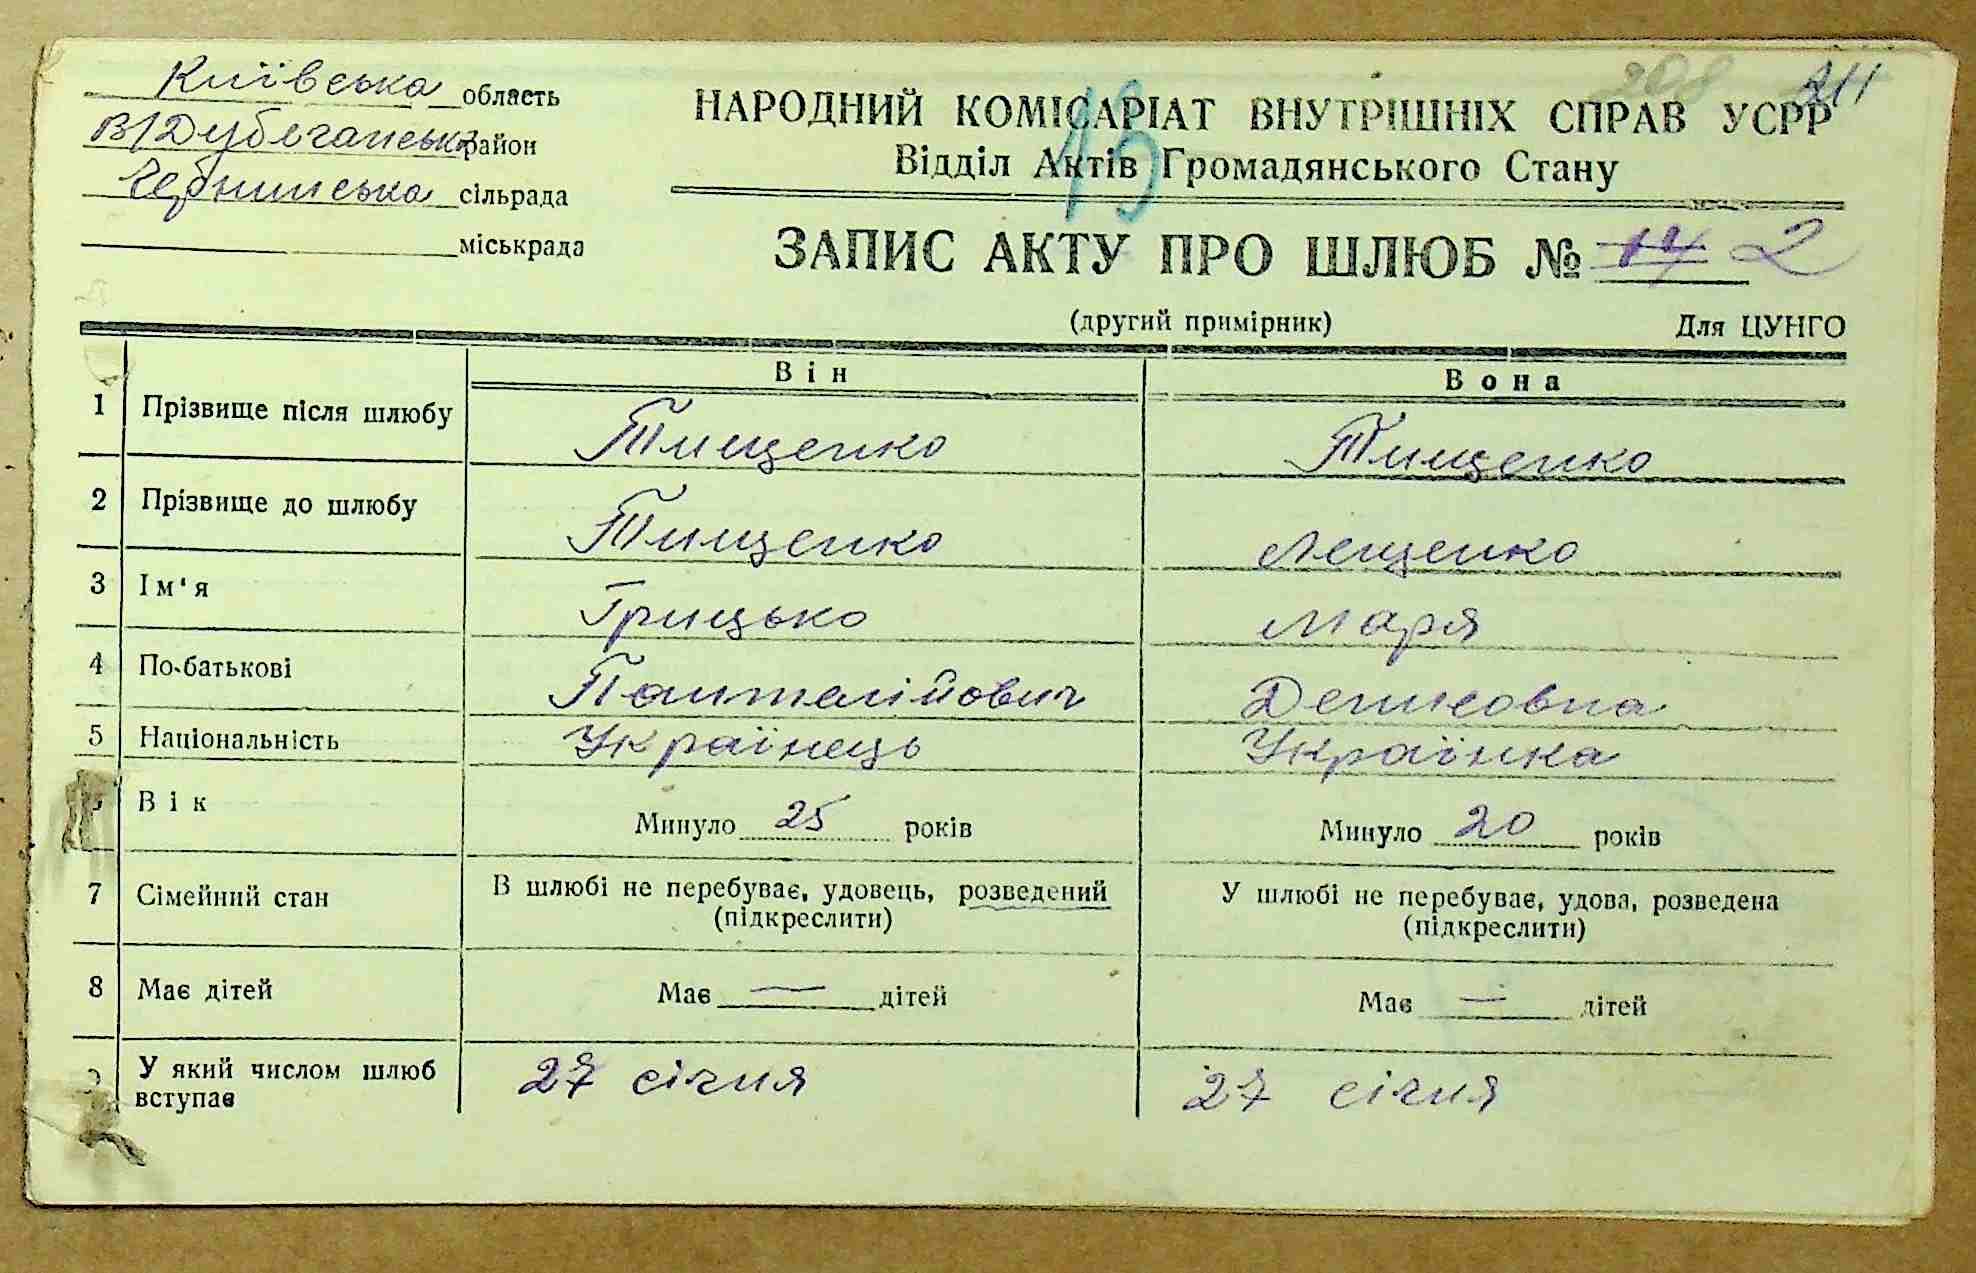 Київська область
В/Дубечанська район
сільрада
міськрада
208 211
НАРОДНИЙ КОМІСАРІАТ ВНУТРІШНІХ СПРАВ УСРР
Відділ Актів Громадянського Стану
ЗАПИС АКТУ ПРО ШЛЮБ № 14 2
(другий примірник) Для ЦУНГО
Він Вона
1 Прізвище після шлюбу Тищенко Тищенко
2 Прізвище до шлюбу Тищенко Лещенко
3 Ім'я Грицько Маря
4 По-батькові Панталійович Денисовна
5 Національність Українець Українка
6 Вік Минуло 25 років Минуло 20 років
7 Сімейний стан В шлюбі не перебуває, удовець, розведений У шлюбі не перебуває, удова, розведена
(підкреслити) (підкреслити)
8 Має дітей Має — дітей Має — дітей
9 У який числом шлюб 27 січня 27 січня
вступає